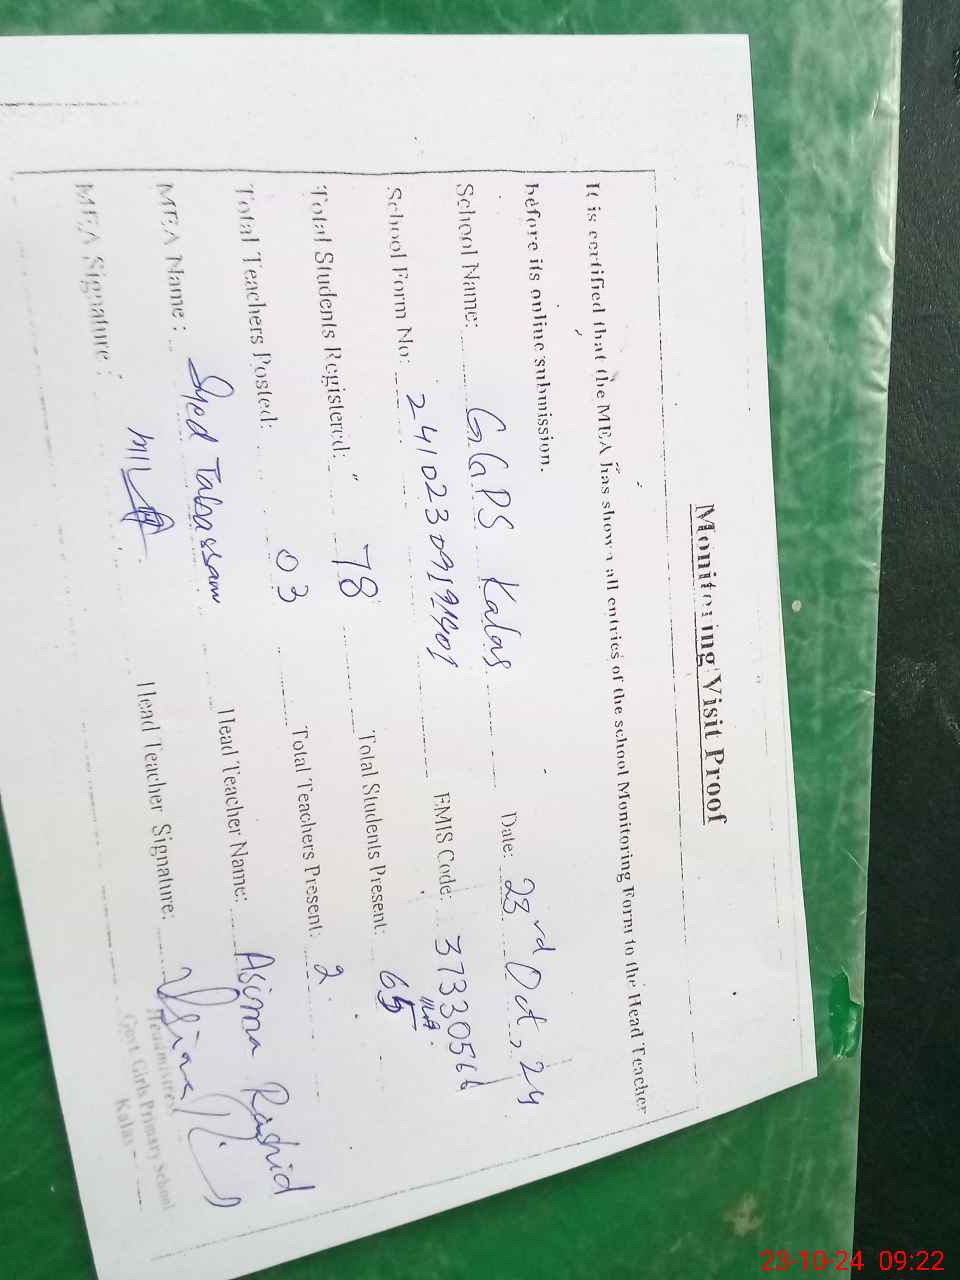 Monitoring Visit Proof
It is certified that the MEA has shown all entries of the school Monitoring Form to the Head Teacher
before its online submission.
School Name: GGPS Kalas Date: 23rd Oct, 24
School Form No: EMIS Code: 37330566
Total Students Registered: 78 Total Students Present: 65
Total Teachers Posted: 03 Total Teachers Present: 2
MEA Name: Syed Tabassam Head Teacher Name: Asima Rashid
MEA Signature: Head Teacher Signature:
Headmistress
Govt Girls Primary School
Kalas
23-10-24 09:22